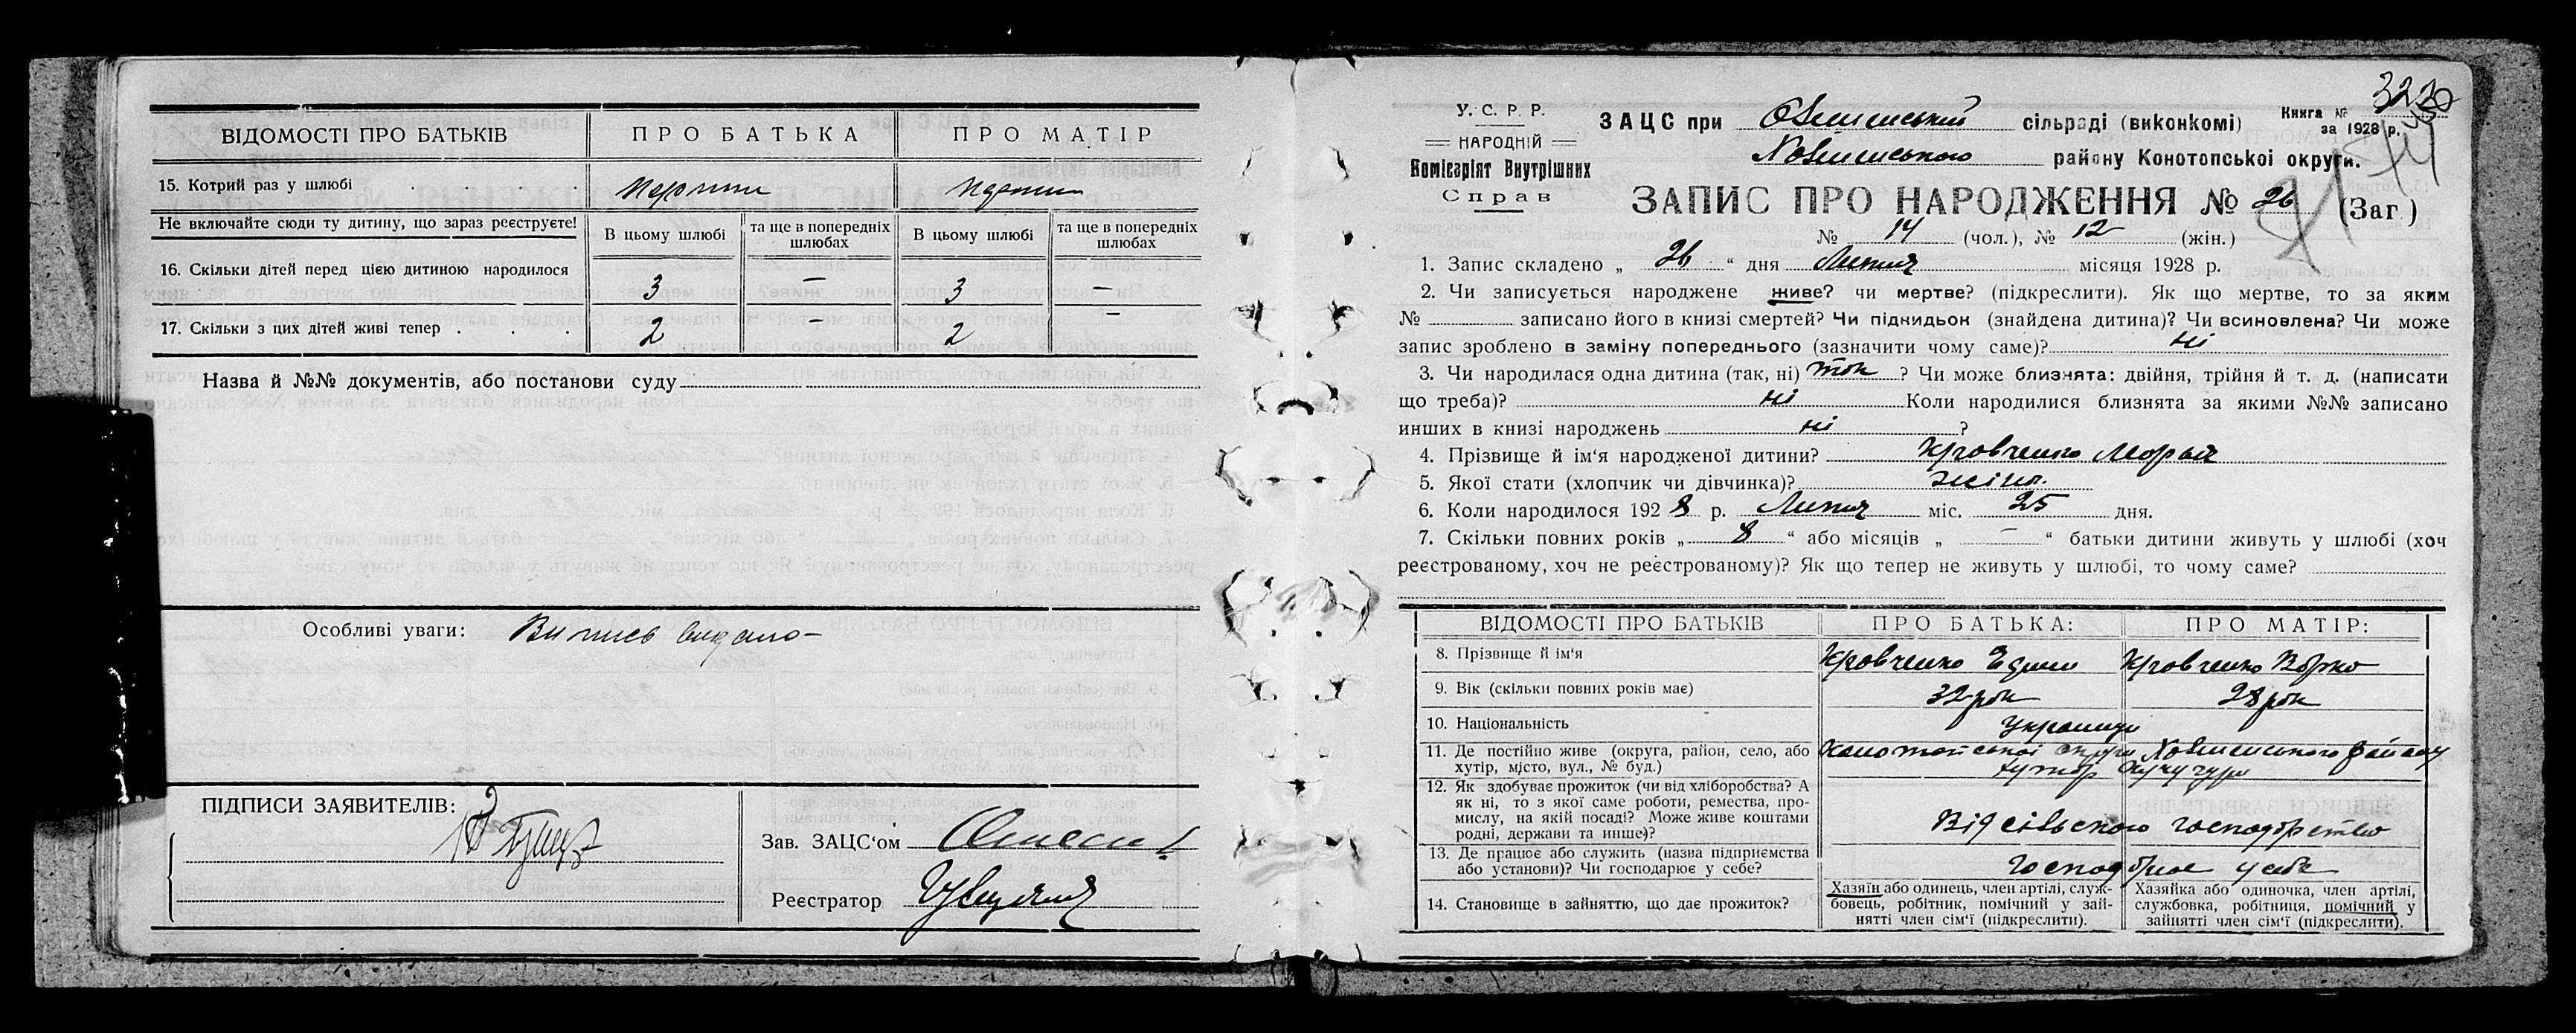 ВІДОМОСТІ ПРО БАТЬКІВ
ПРО БАТЬКА
ПРО МАТІР
15. Котрий раз у шлюбі
Не включайте сюди ту дитину, що зараз реєструєте!
В цьому шлюбі
та ще в попередніх шлюбах
В цьому шлюбі
та ще в попередніх шлюбах
16. Скільки дітей перед цією дитиною народилося 3 — 3 —
17. Скільки з цих дітей живі тепер . . 2 — 2 —
Назва й №№ документів, або постанови суду
Особливі уваги: Випись видано —
ПІДПИСИ ЗАЯВИТЕЛІВ:
Зав. ЗАЦС'ом
Реєстратор
У. С. Р. Р.
НАРОДНІЙ
Комісаріят Внутрішних
Справ
ЗАЦС при сільраді (виконкомі)
району Конотопської округи.
Книга №
за 1928 р.
ЗАПИС ПРО НАРОДЖЕННЯ № 26 (Заг.)
№ 14 (чол.), № 12 (жін.)
1. Запис складено „ 26 “ дня Липня місяця 1928 р.
2. Чи записується народжене живе? чи мертве? (підкреслити). Як що мертве, то за яким
№ записано його в книзі смертей? Чи підкидьок (знайдена дитина)? Чи всиновлена? Чи може
запис зроблено в заміну попереднього (зазначити чому саме)? ні
3. Чи народилася одна дитина (так, ні) так ? Чи може близнята: двійня, трійня й т. д. (написати
що треба)? ні Коли народилися близнята за якими №№ записано
инших в книзі народжень ні ?
4. Прізвище й ім'я народженої дитини? Кравченко Марья
5. Якої стати (хлопчик чи дівчинка)? жін.
6. Коли народилося 1928 р. Липня міс. 25 дня.
7. Скільки повних років „ 8 “ або місяців „ — “ батьки дитини живуть у шлюбі (хоч
реєстрованому, хоч не реєстрованому)? Як що тепер не живуть у шлюбі, то чому саме?
ВІДОМОСТІ ПРО БАТЬКІВ
ПРО БАТЬКА:
ПРО МАТІР:
8. Прізвище й ім'я Кравченко Кравченко
9. Вік (скільки повних років має) 32 рок 28 рок
10. Національність Украинци
11. Де постійно живе (округа, район, село, або
хутір, місто, вул., № буд.)
Конотопської округи району
хутор
12. Як здобуває прожиток (чи від хліборобства? А
як ні, то з якої саме роботи, ремества, про-
мислу, на якій посаді? Може живе коштами
родні, держави та инше)?
Від сільського господарства
13. Де працює або служить (назва підприємства
або установи)? Чи господарює у себе?
у себе
14. Становище в зайняттю, що дає прожиток?
Хазяїн або одинець, член артілі, служ-
бовець, робітник, помічний у зай-
нятті член сім'ї (підкреслити).
Хазяйка або одиночка, член артілі,
службовка, робітниця, помічний у
зайнятті член сім'ї (підкреслити).